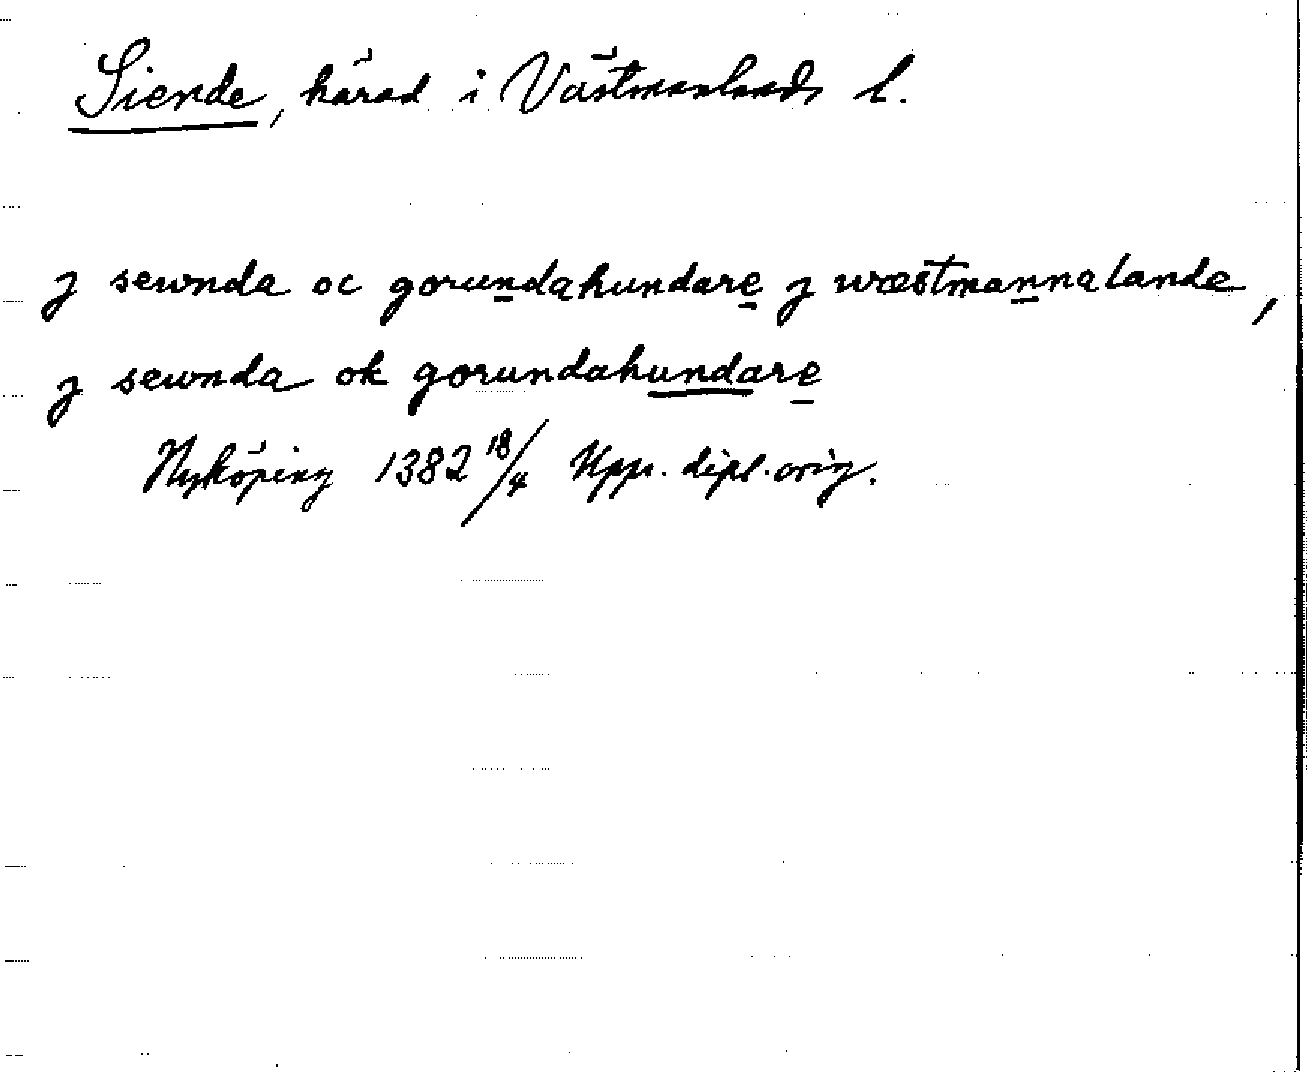 Siende, härad i Västmanlands l.
j sewnda oc gorundahundare j wæstmannalande,
j sewnda ok gorundahundare
Nyköping 1382 18/4 Upps. dipl. orig.